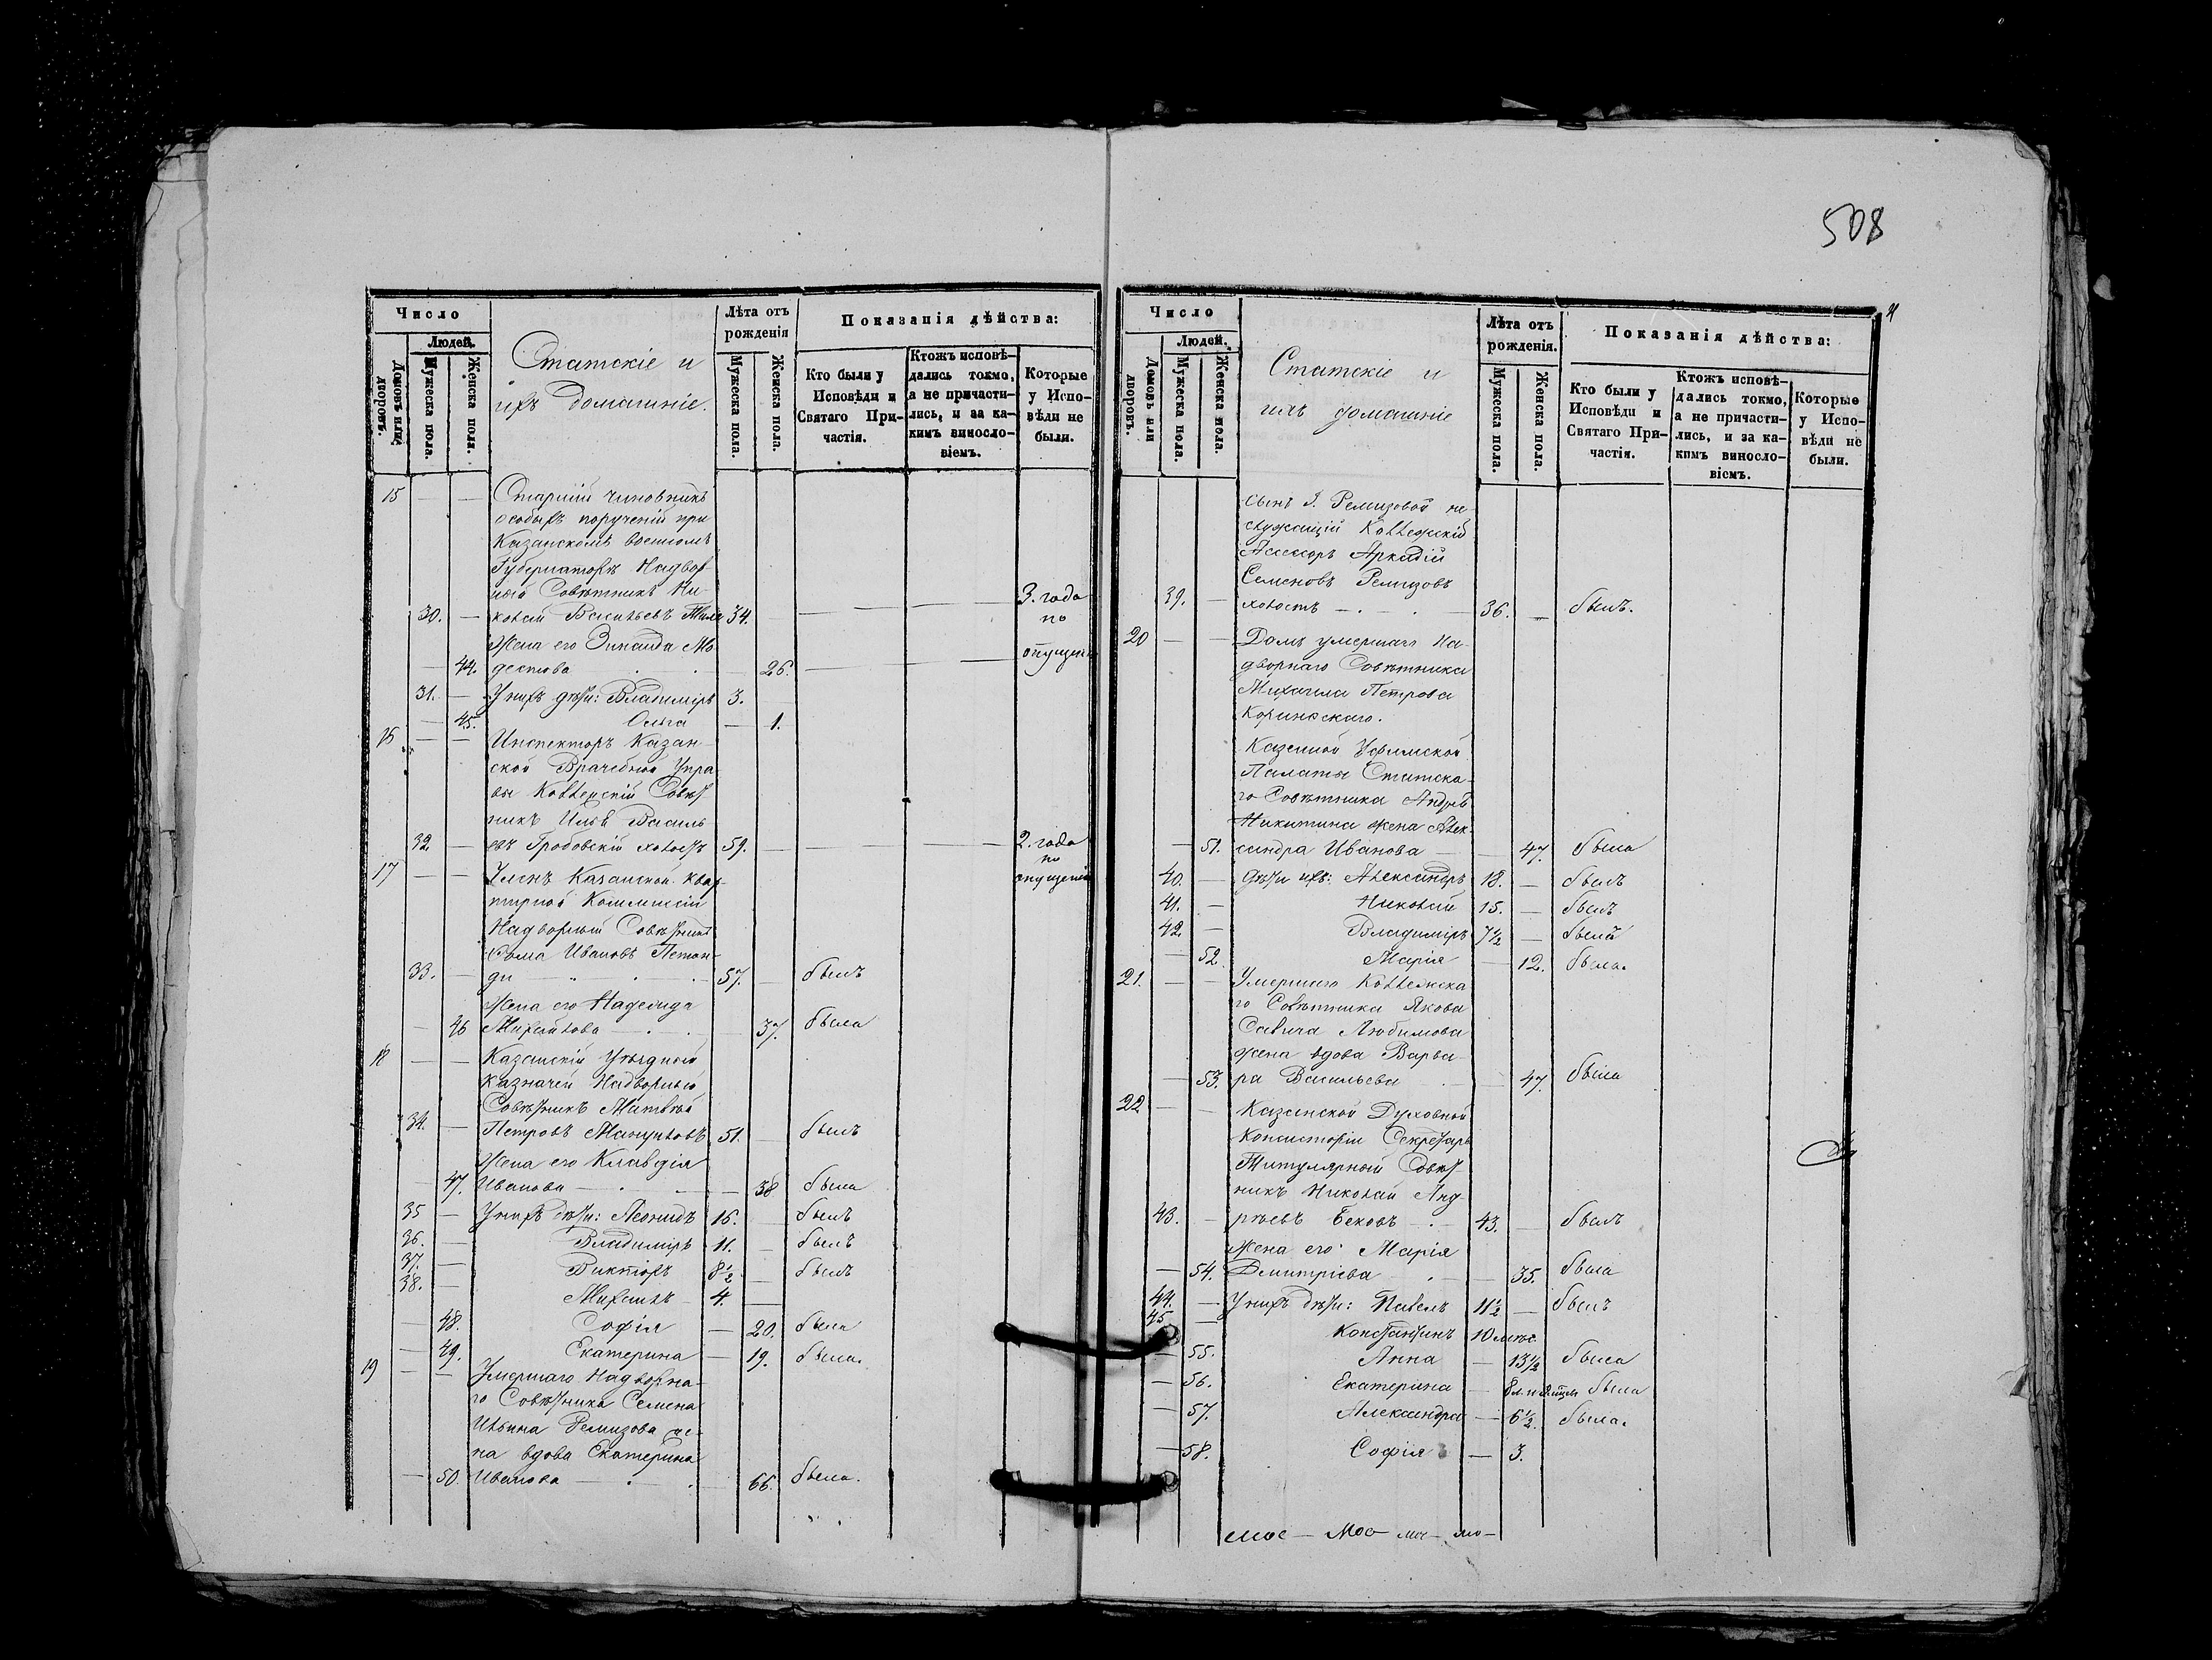 508
4
Число
Людей.
Домовъ или дворовъ.
Мужеска пола.
Женска пола.
Статскіе и
ихъ домашніе.
Лѣта отъ
рожденія
Мужеска пола.
Женска пола.
Показанія дѣйства:
Кто были у
Исповѣди и
Святаго При-
частія.
Ктожъ исповѣ-
дались токмо,
а не причасти-
лись, и за ка-
кимъ винословіемъ.
Которые
у Испо-
вѣди не
были.
15 — — Старшій чиновникъ
особыхъ порученій при
Казанскомъ военномъ
Губернаторѣ Надвор
ный Совѣтникъ Ни-
30. — колай Васильевъ 34. — — — 3. года
по
Жена его Зинаида Мо
44. дестова 26. — — опущен
31. — У нихъ дѣти: Владиміръ 3.
— 45. Ольга — 1.
16 — — Инспекторъ Казан-
ской Врачебной Упра
вы Коллежскій Совѣт
никъ Илья Василь
32. — евъ Гробовскій холостъ 59. — — — 2. года
по
опущенію
17 — — Членъ Казанской Квар-
тирной Коммисіи
Надворный Совѣтникъ
Ивановъ
33. — ди — 57. былъ
Жена его Надежда
— 46 Михайлова — 37. была
18 — — Казанскій Уѣздный
Казначей Надворный
Совѣтникъ Матвѣй
34. — Петровъ 51. — былъ
Жена его Клавдія
47. Иванова — — 38 была
35 — У нихъ дѣти: Леонидъ 16. — былъ
36. — Владиміръ 11. — былъ
37. — Викторъ 8½ — былъ
38. — Михаилъ 4. —
— 48. Софія — 20. была
— 49. Екатерина — 19. была.
19 — — Умершаго Надворна-
го Совѣтника Семена
Ильина Ремизова же-
на вдова Екатерина
— 50. Иванова — 66. была.
Число
Людей.
Домовъ или дворовъ.
Мужеска пола.
Женска пола.
Статскіе и
ихъ домашніе
Лѣта отъ
рожденія.
Мужеска пола.
Женска пола.
Показанія дѣйства:
Кто были у
Исповѣди и
Святаго При-
частія.
Ктожъ исповѣ-
дались токмо,
а не причасти-
лись, и за ка-
кимъ винословіемъ.
Которые
у Испо-
вѣди не
были.
Сынъ Г. Ремизовой не-
служащій Коллежскій
Ассесоръ Аркадій
Семеновъ Ремизовъ
39. — холостъ — 36. — былъ.
20 — — Домъ умершаго На-
дворнаго Совѣтника
Михаила Петрова
Коринфскаго.
Казенной Уфимской
Палаты Статска-
го Совѣтника Андрея
Никитина жена Алек-
— 51. сандра Иванова — — 47. была
40. — Дѣти ихъ: Александръ 18. — былъ
41. — Николай 15. — былъ
42. — Владиміръ 7½ — былъ
— 52. Марія — 12. была.
21. — — Умершаго Коллежска
го Совѣтника Якова
Савича Любимова
жена вдова Варва-
— 53. ра Васильева — 47. была
22 — — Казанской Духовной
Консисторіи Секретарь
Титулярный Совѣт-
никъ Николай Анд
43. — реевъ Бековъ — 43. — былъ
Жена его Марія
— 54. Дмитріева — — 35. была
44. — У нихъ дѣти: Павелъ 11½ — былъ
45 — Константинъ 10 мѣс.
— 55. Анна — 13½ была
— 56. Екатерина — была
— 57. Александра — 6½. была.
— 58. Софія — 3.